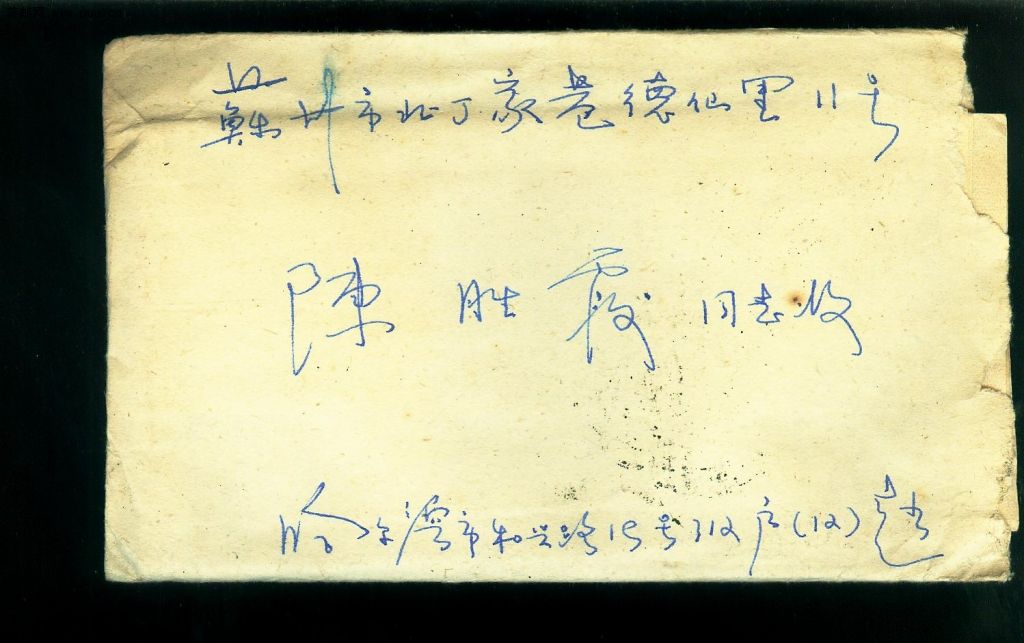 蘇州市北丁家巷德仙里11号
陳胜霞同志收
哈尔濱市和兴路15号312户(12)趙